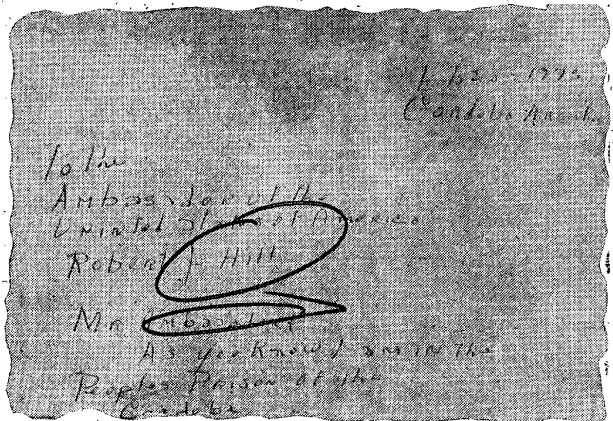 Cordoba
To the
Ambasador of the
United States of America
Robert Hill
Mr. Ambasador
As you Know I am in the
Peoples Prison of the
Cordoba